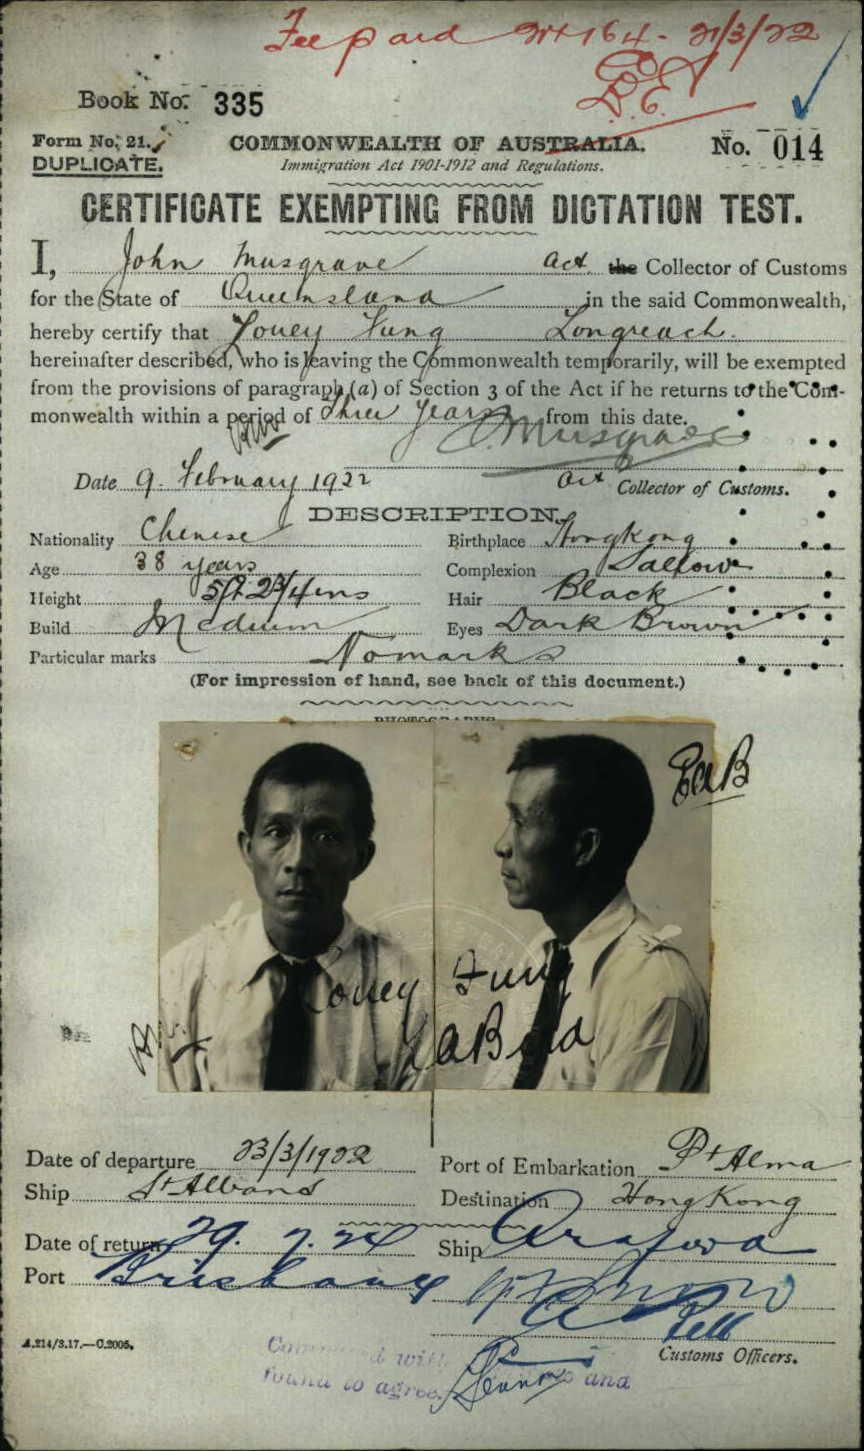 Fee paid 21/3/22
Book No. 335
Form No. 21. COMMONWEALTH OF AUSTRALIA. No. 014
DUPLICATE. Immigration Act 1901-1912 and Regulations.
CERTIFICATE EXEMPTING FROM DICTATION TEST.
I, John Musgrave Act. the Collector of Customs
for the State of Queensland in the said Commonwealth,
hereby certify that Louey Fung Longreach.
hereinafter described, who is leaving the Commonwealth temporarily, will be exempted
from the provisions of paragraph (a) of Section 3 of the Act if he returns to the Com-
monwealth within a period of Three Years from this date.
Musgrave
Date 9. February 1922 Act Collector of Customs.
DESCRIPTION.
Nationality Chinese Birthplace Hongkong
Age 38 years Complexion Sallow
Height 5ft 2 3/4 ins Hair Black
Build Medium Eyes Dark Brown
Particular marks No marks
(For impression of hand, see back of this document.)
PHOTOGRAPHS
Louey Fung
Date of departure 23/3/1922 Port of Embarkation Pt Alma
Ship St Albans Destination Hong Kong
Date of return 29. 7. 24 Ship Arafura
Port Brisbane
Customs Officers.
A.214/3.17.—C.2005.
found to agree and